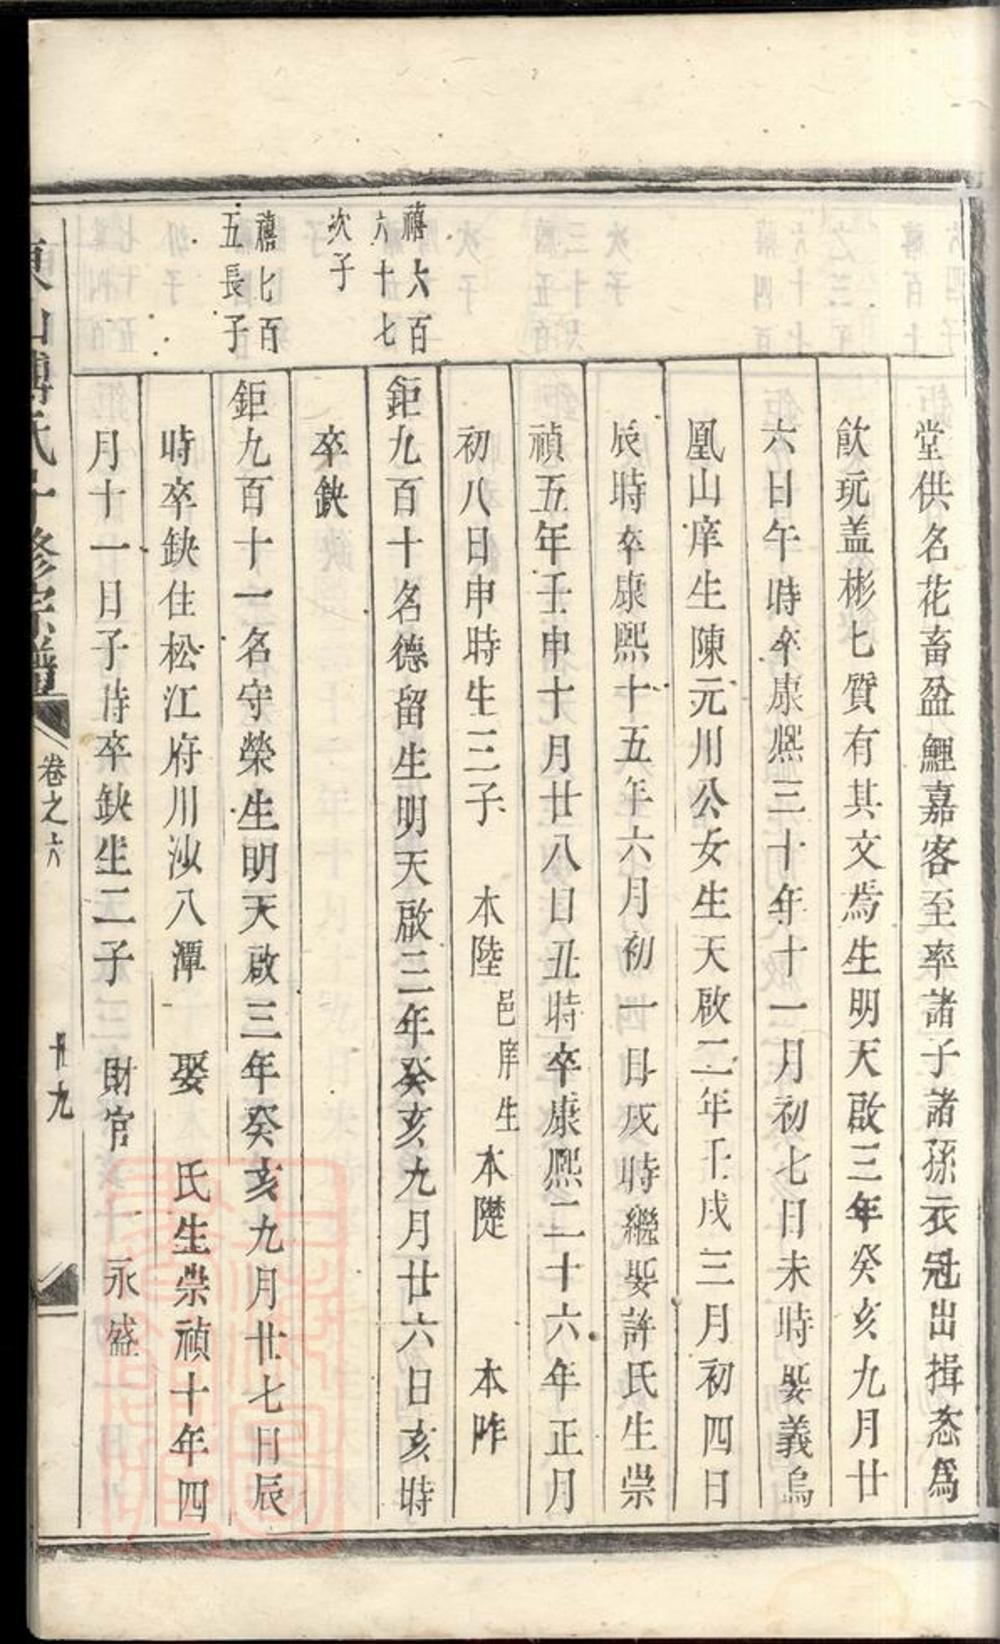 堂供名花畜盈鯉嘉客至率諸子諸孫衣冠出揖恣為
飲玩盖彬七質有其文焉生明天啟三年癸亥九月廿
六日午時卒康熙三十年十一月初七日未時娶義烏
凰山庠生陳元川公女生天啟二年壬戌三月初四日
辰時卒康熙十五年六月初一日戌時繼娶許氏生崇
禎五年壬申十月廿八日丑時卒康熙二十六年正月
初八日申時生三子 本陸 邑庠生 本䃮 本昨
禧六百六十七
鉅九百十名德留生明天啟三年癸亥九月廿六日亥時
次子
卒鈌
禧七百五長子
鉅九百十一名守榮生明天啟三年癸亥九月廿七日辰
時卒鈌住松江府川沙八潭 娶 氏生崇禎十年四
月十一日子時卒鈌生二子 財官 永盛
山傅氏 修宗譜
卷之六
九